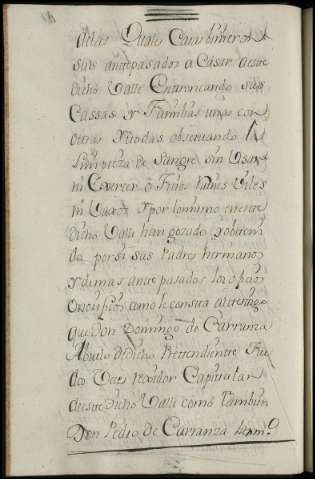 dellas Quales Casas binieron
sus antepasados a Casar aeste
dicho Valle Enttroncando sus
Cassas y Familias unas con
otras y todas obserbando la
Limpieza de Sangre sin Usar
ni Exercer ofizios Ruines Viles
ni Vaxos y por lo mismo eneste
dicho Valle han gozado y obteni
do por si sus Padres hermanos
y demas ante pasados los ofizios
onorificos como le consta al testigo
que Don Domingo de Carranza
Abuelo de dicho Prettendiente Fue
dos Vezes rexidor Capitular
deeste dicho Valle como tambien
Don Pedro de Carranza herm.º